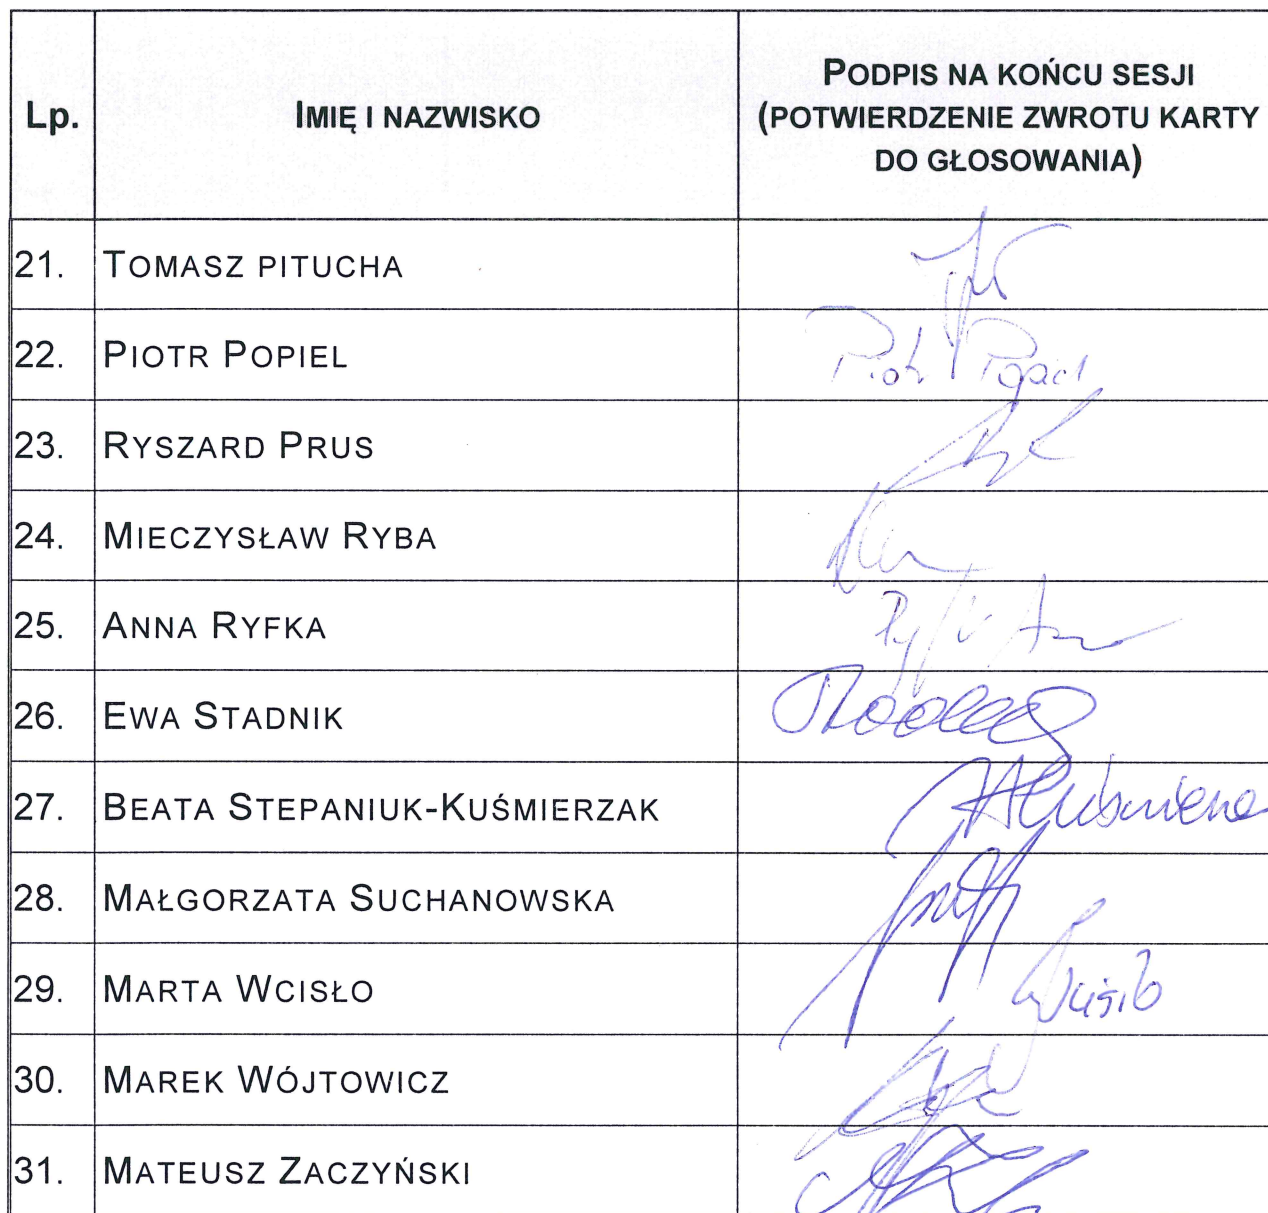 Lp.
IMIĘ I NAZWISKO
PODPIS NA KOŃCU SESJI
(POTWIERDZENIE ZWROTU KARTY
DO GŁOSOWANIA)
21. TOMASZ PITUCHA
22. PIOTR POPIEL Piotr Popiel
23. RYSZARD PRUS
24. MIECZYSŁAW RYBA
25. ANNA RYFKA
26. EWA STADNIK
27. BEATA STEPANIUK-KUŚMIERZAK
28. MAŁGORZATA SUCHANOWSKA
29. MARTA WCISŁO Wcisło
30. MAREK WÓJTOWICZ
31. MATEUSZ ZACZYŃSKI